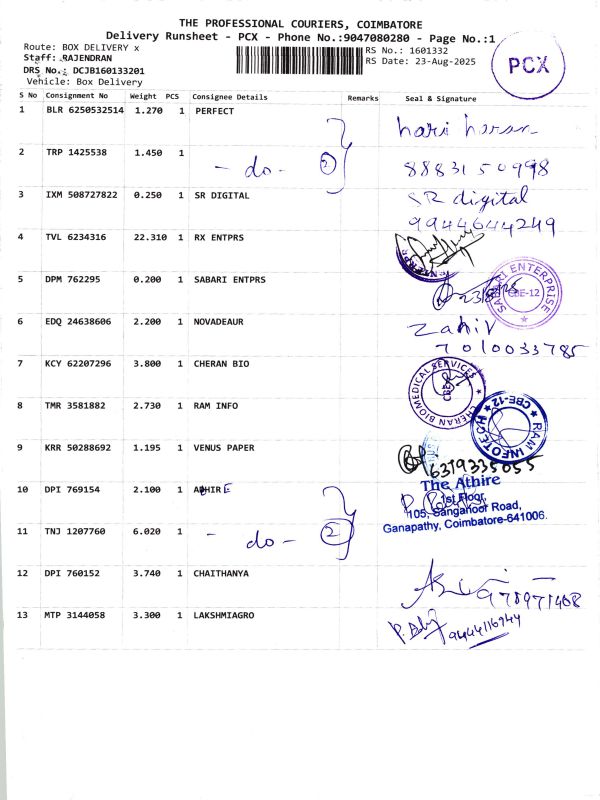 THE PROFESSIONAL COURIERS, COIMBATORE
Delivery Runsheet - PCX - Phone No.:9047080280 - Page No.:1
Route: BOX DELIVERY x
RS No.: 1601332
Staff: RAJENDRAN
RS Date: 23-Aug-2025
DRS No.: DCJB160133201
Vehicle: Box Delivery
PCX
S No Consignment No Weight PCS Consignee Details Remarks Seal & Signature
1 BLR 6250532514 1.270 1 PERFECT
hari haran
2 TRP 1425538 1.450 1 - do - 2 8883150998
3 IXM 508727822 0.250 1 SR DIGITAL SR digital
9944644249
4 TVL 6234316 22.310 1 RX ENTPRS
5 DPM 762295 0.200 1 SABARI ENTPRS
SABARI ENTERPRISE CBE-12
6 EDQ 24638606 2.200 1 NOVADEAUR Zahir
7010033785
7 KCY 62207296 3.800 1 CHERAN BIO
CHERAN BIOMEDICAL SERVICES
8 TMR 3581882 2.730 1 RAM INFO
RAM INFOTECH CBE-12
9 KRR 50288692 1.195 1 VENUS PAPER
6379335055
10 DPI 769154 2.100 1 ADHIRE
The Athire
1st Floor,
105, Sanganoor Road,
Ganapathy, Coimbatore-641006.
11 TNJ 1207760 6.020 1 - do - 2
12 DPI 760152 3.740 1 CHAITHANYA
13 MTP 3144058 3.300 1 LAKSHMIAGRO
9444116944